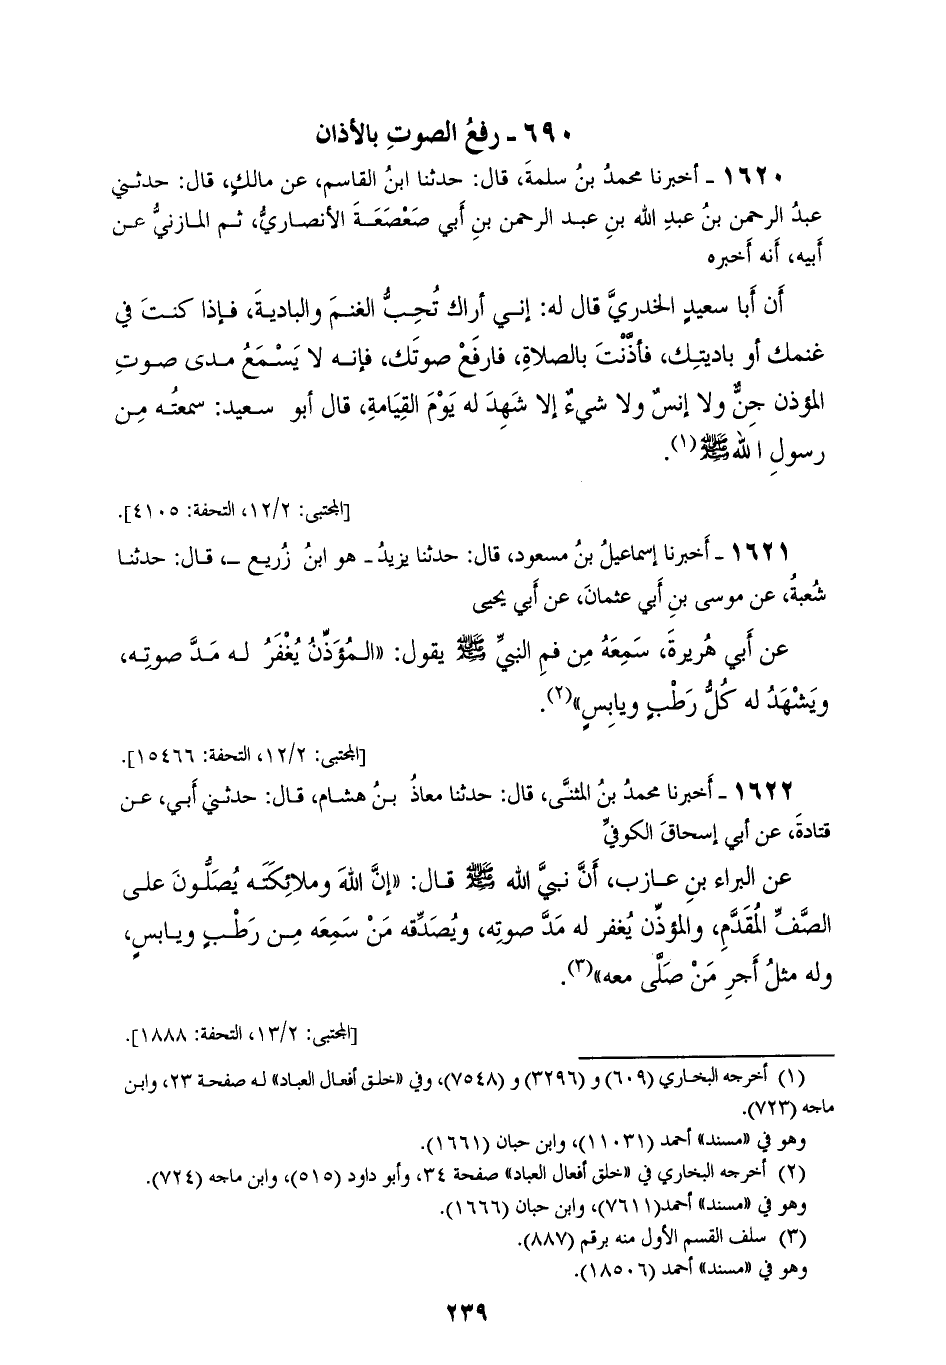 ٦٩٠ ـ رفعُ الصوتِ بالأذان
١٦٢٠ ـ أخبرنا محمدُ بنُ سلمةَ، قال: حدثنا ابنُ القاسم، عن مالكٍ، قال: حدثني
عبدُ الرحمن بنُ عبدِ الله بنِ عبد الرحمن بنِ أَبي صَعْصَعَةَ الأنصاريُّ، ثم المازنيُّ عن
أَبيه، أنه أَخبره
أَن أَبا سعيدٍ الخدريَّ قال له: إني أراك تُحِبُّ الغنمَ والباديةَ، فإذا كنتَ في
غنمك أو باديتِك، فأذَّنْتَ بالصلاةِ، فارفَعْ صوتَك، فإنه لا يَسْمَعُ مدى صوتِ
المؤذن جِنٌّ ولا إنسٌ ولا شيءٌ إلا شَهِدَ له يَوْمَ القِيَامةِ، قال أبو سعيد: سمعتُه مِن
رسولِ الله ﷺ(١).
[المجتبى: ١٢/٢، التحفة: ٤١٠٥].
١٦٢١ ـ أَخبرنا إسماعيلُ بنُ مسعود، قال: حدثنا يزيدُ ـ هو ابنُ زُريع ـ، قال: حدثنا
شُعبةُ، عن موسى بنِ أَبي عثمانَ، عن أَبي يحيى
عن أَبي هُريرةَ، سَمِعَهُ مِن فمِ النبيِّ ﷺ يقول: «المُؤَذِّنُ يُغْفَرُ له مَدَّ صوتِه،
ويَشْهَدُ له كُلُّ رَطْبٍ ويابِسٍ»(٢).
[المجتبى: ١٢/٢، التحفة: ١٥٤٦٦].
١٦٢٢ ـ أَخبرنا محمدُ بنُ المثنَّى، قال: حدثنا معاذُ بنُ هشام، قال: حدثني أَبي، عن
قتادةَ، عن أبي إسحاقَ الكوفيِّ
عن البراء بنِ عازب، أَنَّ نبيَّ الله ﷺ قال: «إنَّ اللهَ وملائِكَتَه يُصَلُّونَ على
الصَّفِّ المُقَدَّمِ، والمؤذِّن يُغفر له مَدَّ صوتِه، ويُصَدِّقه مَنْ سَمِعَه مِن رَطْبٍ ويابسٍ،
وله مثلُ أَجرِ مَنْ صَلَّى معه»(٣).
[المجتبى: ١٣/٢، التحفة: ١٨٨٨].
(١) أخرجه البخاري (٦٠٩) و (٣٢٩٦) و (٧٥٤٨)، وفي «خلق أفعال العباد» له صفحة ٢٣، وابن
ماجه (٧٢٣).
وهو في «مسند» أحمد (١١٠٣١)، وابن حبان (١٦٦١).
(٢) أخرجه البخاري في «خلق أفعال العباد» صفحة ٣٤، وأبو داود (٥١٥)، وابن ماجه (٧٢٤).
وهو في «مسند» أحمد(٧٦١١)، وابن حبان (١٦٦٦).
(٣) سلف القسم الأول منه برقم (٨٨٧).
وهو في «مسند» أحمد (١٨٥٠٦).
٢٣٩